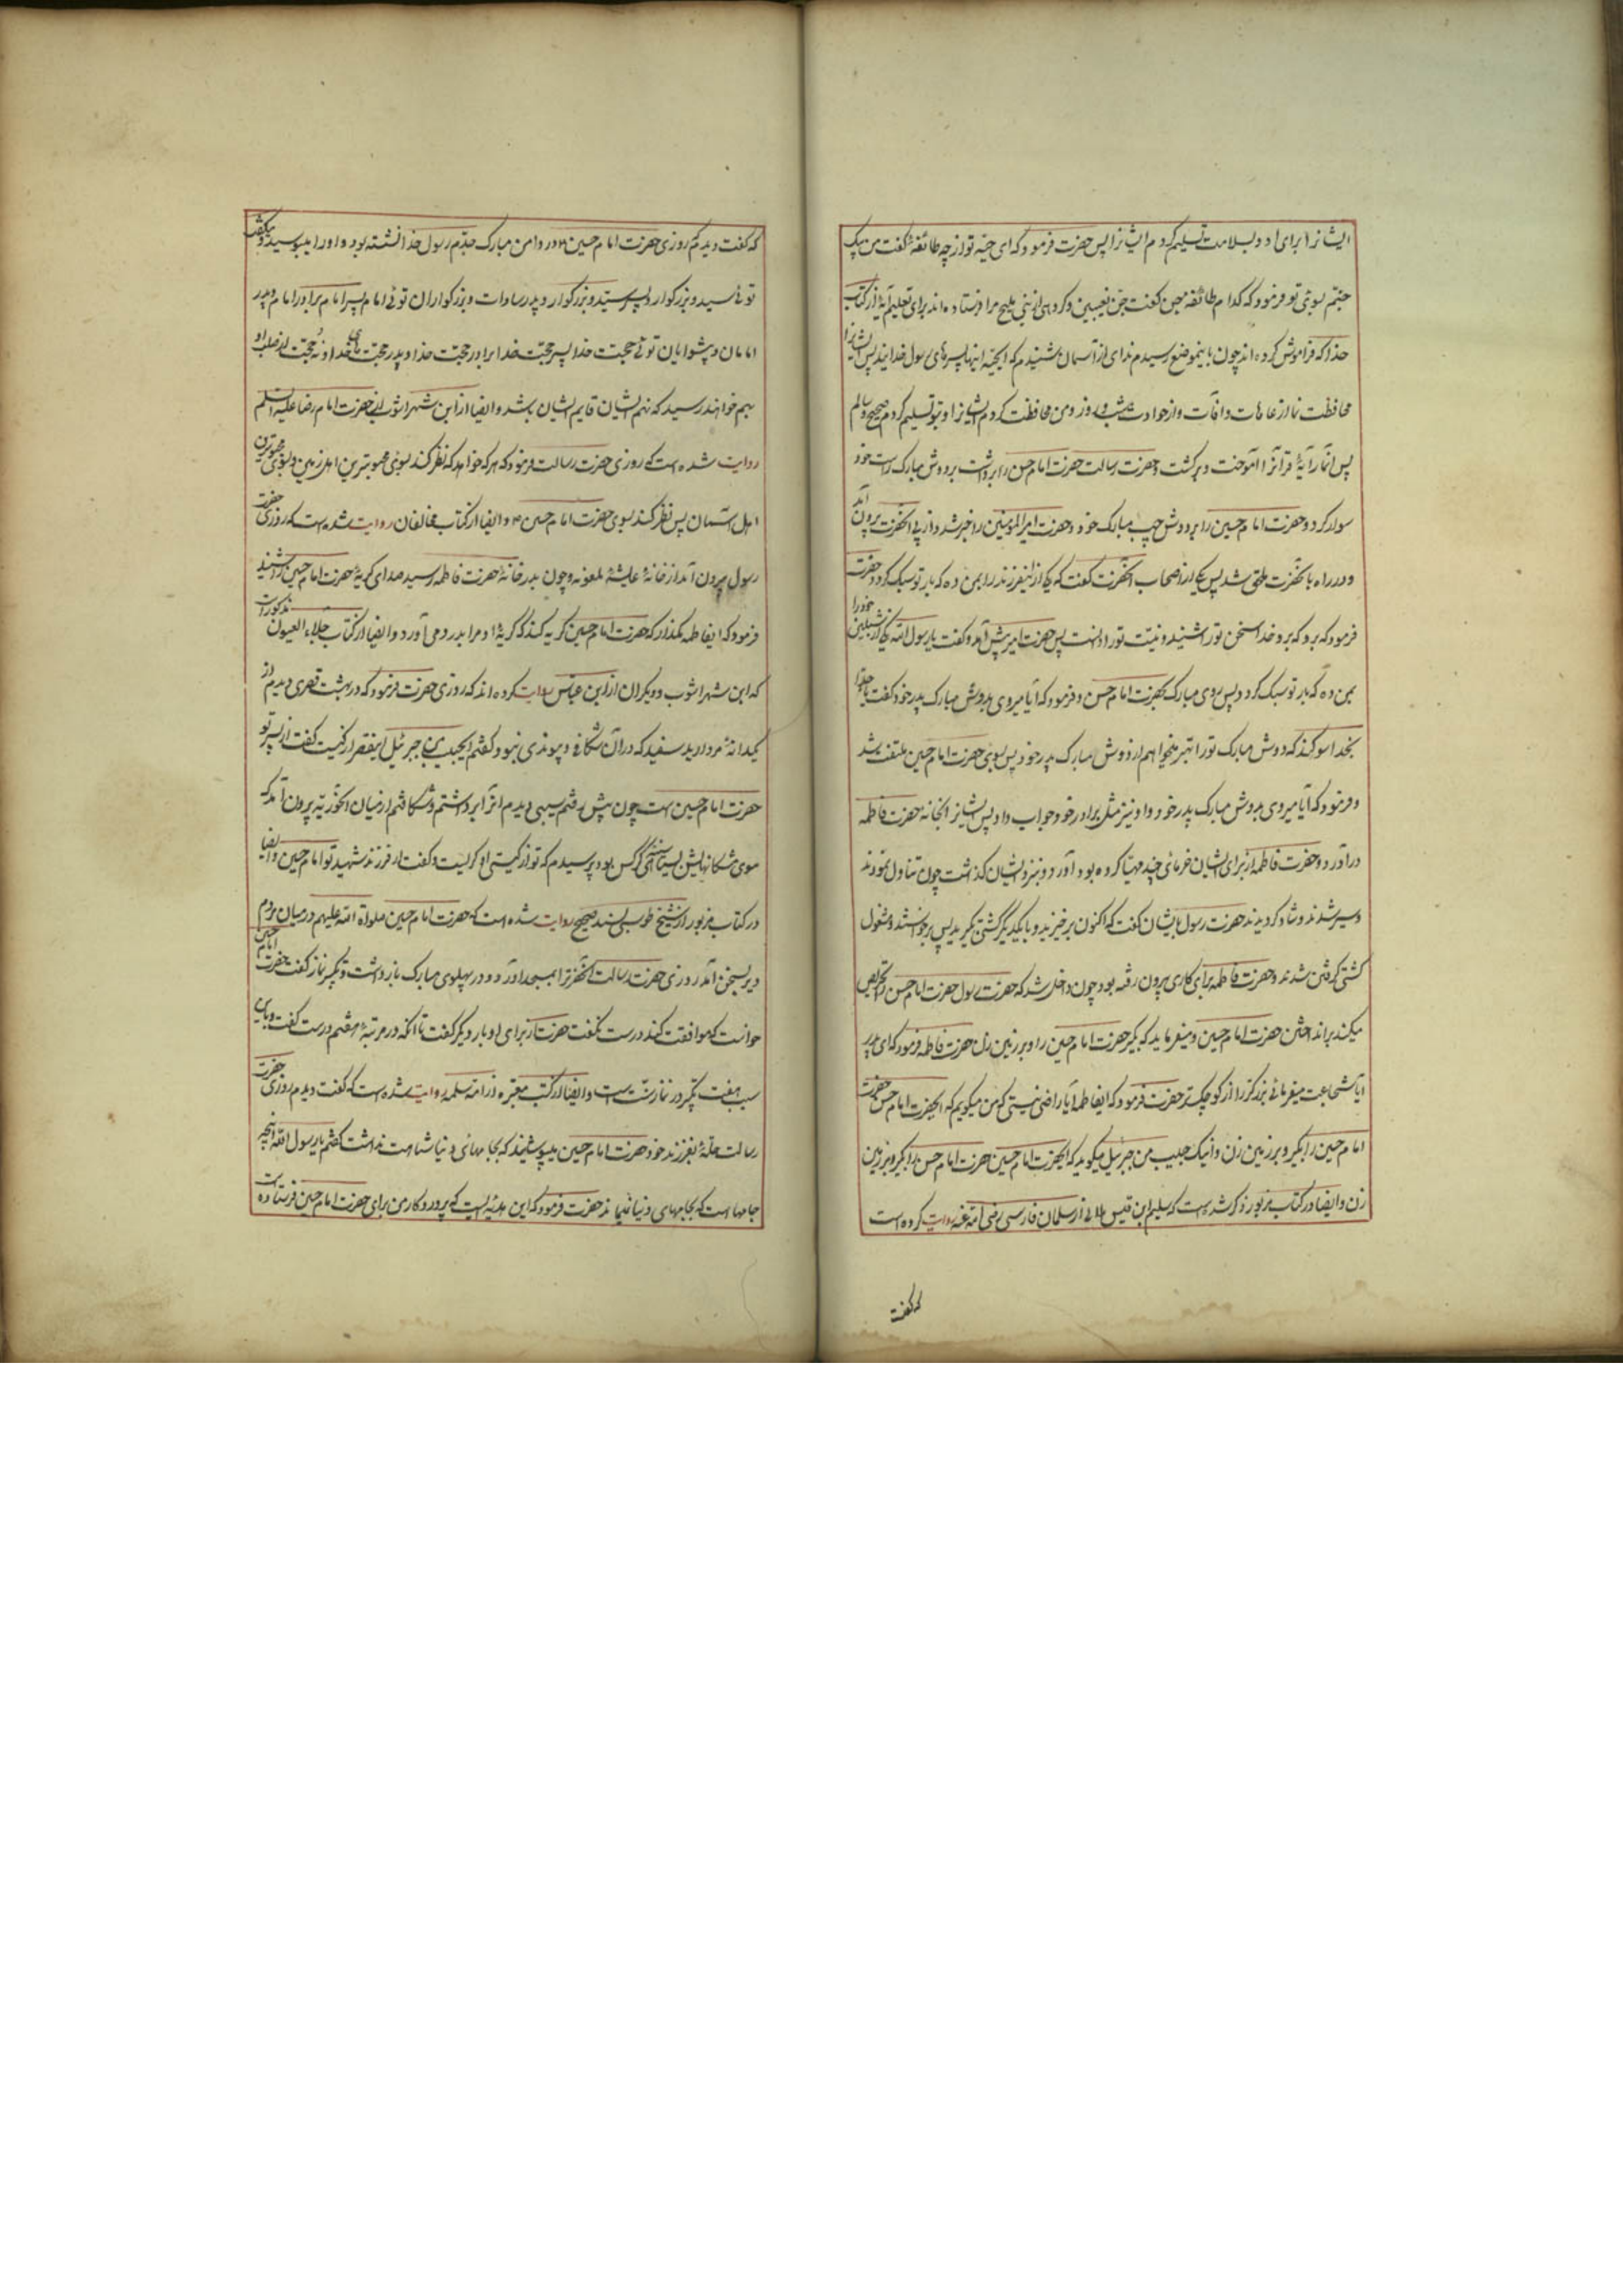 ایشانرا برای او و بسلامت تسلیم کردم ایشانرا پس حضرت فرمود که ای حیّه تو از چه طائفهٔ گفت من پیک
جنّم بسوی تو فرمود که کدام طائفهٔ جن گفت جن نصیبین و گروهی از بنی ملیح مرا فرستاده اند برای تعلیم آیهٔ از کتاب
خدا که فراموش کرده اند چون باینموضع رسیدم ندای از آسمان شنیدم که ایحیّه اینها پسرهای رسول خدایند پس ایشانرا
محافظت نما از عاهات و آفات و از حوادث شب و روز و من محافظت کردم ایشانرا و بتو تسلیم کردم صحیح و سالم
پس آنمار آیهٔ قرآنرا آموخت و برگشت و حضرت رسالت حضرت امام حسن را برداشت بر دوش مبارک راست خود
سوار کرد و حضرت امام حسین را بر دوش چپ مبارک خود و حضرت امیرالمؤمنین را خبر شد و از پی آنحضرت بیرون آمد
و در راه با آنحضرت ملحق شد پس یکی از اصحاب آنحضرت گفت که یکی از اینفرزند را بمن ده که بار تو سبک گردد حضرت
فرمود که برو که خدا سخن تو را شنید و نیت تو را دانست پس حضرت امیر پیش آمد و گفت یا رسول الله یکی از شبلین خود را
بمن ده که بار تو سبک گردد پس روی مبارک بحضرت امام حسن و فرمود که آیا میروی بدوش مبارک پدر خود گفت یا جدّا
بخدا سوگند که دوش مبارک تو را بهتر میخواهم از دوش مبارک پدر خود پس بسوی حضرت امام حسین ملتفت شد
و فرمود که آیا میروی بدوش مبارک پدر خود و او نیز مثل برادر خود جواب داد پس ایشانرا بخانه حضرت فاطمه
درآورد و حضرت فاطمه از برای ایشان خرمای چند مهیّا کرده بود آورد و نزد ایشان گذاشت چون تناول نمودند
و سیر شدند و شاد گردیدند حضرت رسول بایشان گفت که اکنون برخیزید و با یکدیگر کشتی بگیرید پس برخواستند و مشغول
کشتی گرفتن شدند و حضرت فاطمه برای کاری بیرون رفته بود چون داخل شد که حضرت رسول حضرت امام حسن را تحریص
میکند بر انداختن حضرت امام حسین و میفرماید که بگیر حضرت امام حسین را و بر زمین زن حضرت فاطمه فرمود که ای پدر
آیا شجاعت میفرمائی بزرگتر را از کوچک تر حضرت فرمود که ایفاطمه آیا راضی نیستی که من میگویم که ایحضرت امام حسن حضرت
امام حسین را بگیر و بر زمین زن و اینک حبیب من جبرئیل میگوید که ایحضرت امام حسین حضرت امام حسن را بگیر و بر زمین
زن و ایضا در کتاب مزبور ذکر شده است که سلیم ابن قیس هلالی از سلمان فارسی رضی الله عنه روایت کرده است
که گفت
که گفت دیدم روزی حضرت امام حسین ع در دامن مبارک جدّم رسول خدا نشسته بود و او را میبوسید و میگفت
توئی سید و بزرگوار و پسر سیّد و بزرگوار و پدر سادات و بزرگواران توئی امام پسر امام برادر امام و پدر
امامان و پیشوایان توئی حجت خدا پسر حجّت خدا برادر حجّت خدا و پدر حجتهای خدا و نُه حجّت از صلب او
بهم خواهند رسید که نهم ایشان قایم ایشان باشد و ایضا از ابن شهر آشوب از حضرت امام رضا علیه السلم
روایت شده است که روزی حضرت رسالت فرمود که هر که خواهد که نظر کند بسوی محبوبترین اهل زمین و بسوی محبوبترین
اهل آسمان پس نظر کند بسوی حضرت امام حسین ع و ایضا از کتاب مخالفان روایت شده است که روزی حضرت
رسول بیرون آمد از خانهٔ عایشهٔ ملعونه و چون بدر خانهٔ حضرت فاطمه رسید صدای گریهٔ حضرت امام حسین را شنید
فرمود که ایفاطمه مگذار که حضرت امام حسین گریه کند که گریهٔ او مرا بدرد می آورد و ایضا از کتاب جلاء العیون مذکور است
که ابن شهر آشوب و دیگران از ابن عبّاس روایت کرده اند که روزی حضرت فرمود که در بهشت قصری دیدم از
یکدانهٔ مروارید سفید که در آن شکافی و پیوندی نبود گفتم ایحبیب من جبرئیل اینقصر از کیست گفت از پسر تو
حضرت امام حسین است چون پیش رفتم سیبی دیدم آنرا برداشتم و شکافتم از میان آن حوریّه بیرون آمد که
موی مژگانهایش بسیاهی کرکس بود پرسیدم که تو از کیستی او گریست و گفت از فرزند شهید تو امام حسین و ایضا
در کتاب مزبور از شیخ طوسی بسند صحیح روایت شده است که حضرت امام حسین صلواة الله علیهم در میان مردم
دیر بسخن آمد روزی حضرت رسالت آنحضرترا بمسجد آورد و در پهلوی مبارک بازداشت و تکبیر نماز گفت حضرت امام حسین
خواست که موافقت کند درست نگفت حضرت از برای او بار دیگر گفت تا آنکه در مرتبهٔ هفتم درست گفت و باین
سبب هفت تکبیر در نماز سنّت است و ایضا در کتب معتبره از امّ سلمه روایت شده است که گفت دیدم روزی حضرت
رسالت حلّهٔ بفرزند خود حضرت امام حسین میپوشاند که بجامهای دنیا شباهت نداشت گفتم یا رسول الله این چه
جامها است که بجامهای دنیا نمیماند حضرت فرمود که این هدیهٔ ایست که پروردگار من برای حضرت امام حسین فرستاده است